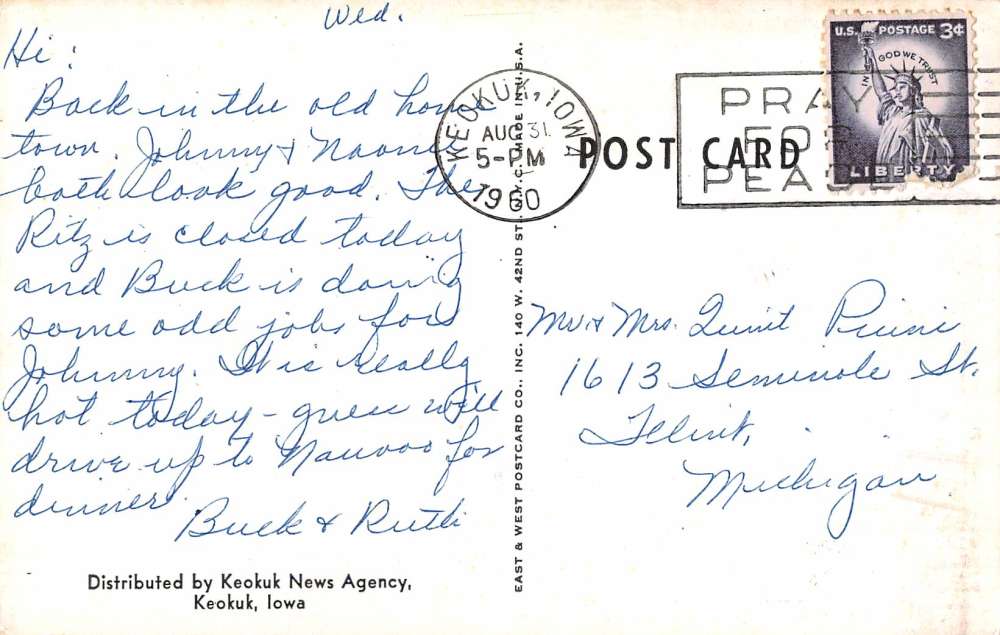 Wed.
Hi:
Back in the old home
town. Johnny & Naomi
both look good. The
Ritz is closed today
and Buck is doing
some odd jobs for
Johnny. It is really
hot today - guess will
drive up to Nauvoo for
dinner.
Buck & Ruth
Distributed by Keokuk News Agency,
Keokuk, Iowa
EAST & WEST POSTCARD CO., INC. 140 W. 42ND ST. N.Y.C. MADE IN U.S.A.
KEOKUK, IOWA
AUG 31
5-PM
1960
POST CARD
PRAY
FOR
PEACE
U.S. POSTAGE 3¢
IN GOD WE TRUST
LIBERTY
Mr & Mrs. Quint
1613 Seminole St.
Flint,
Michigan